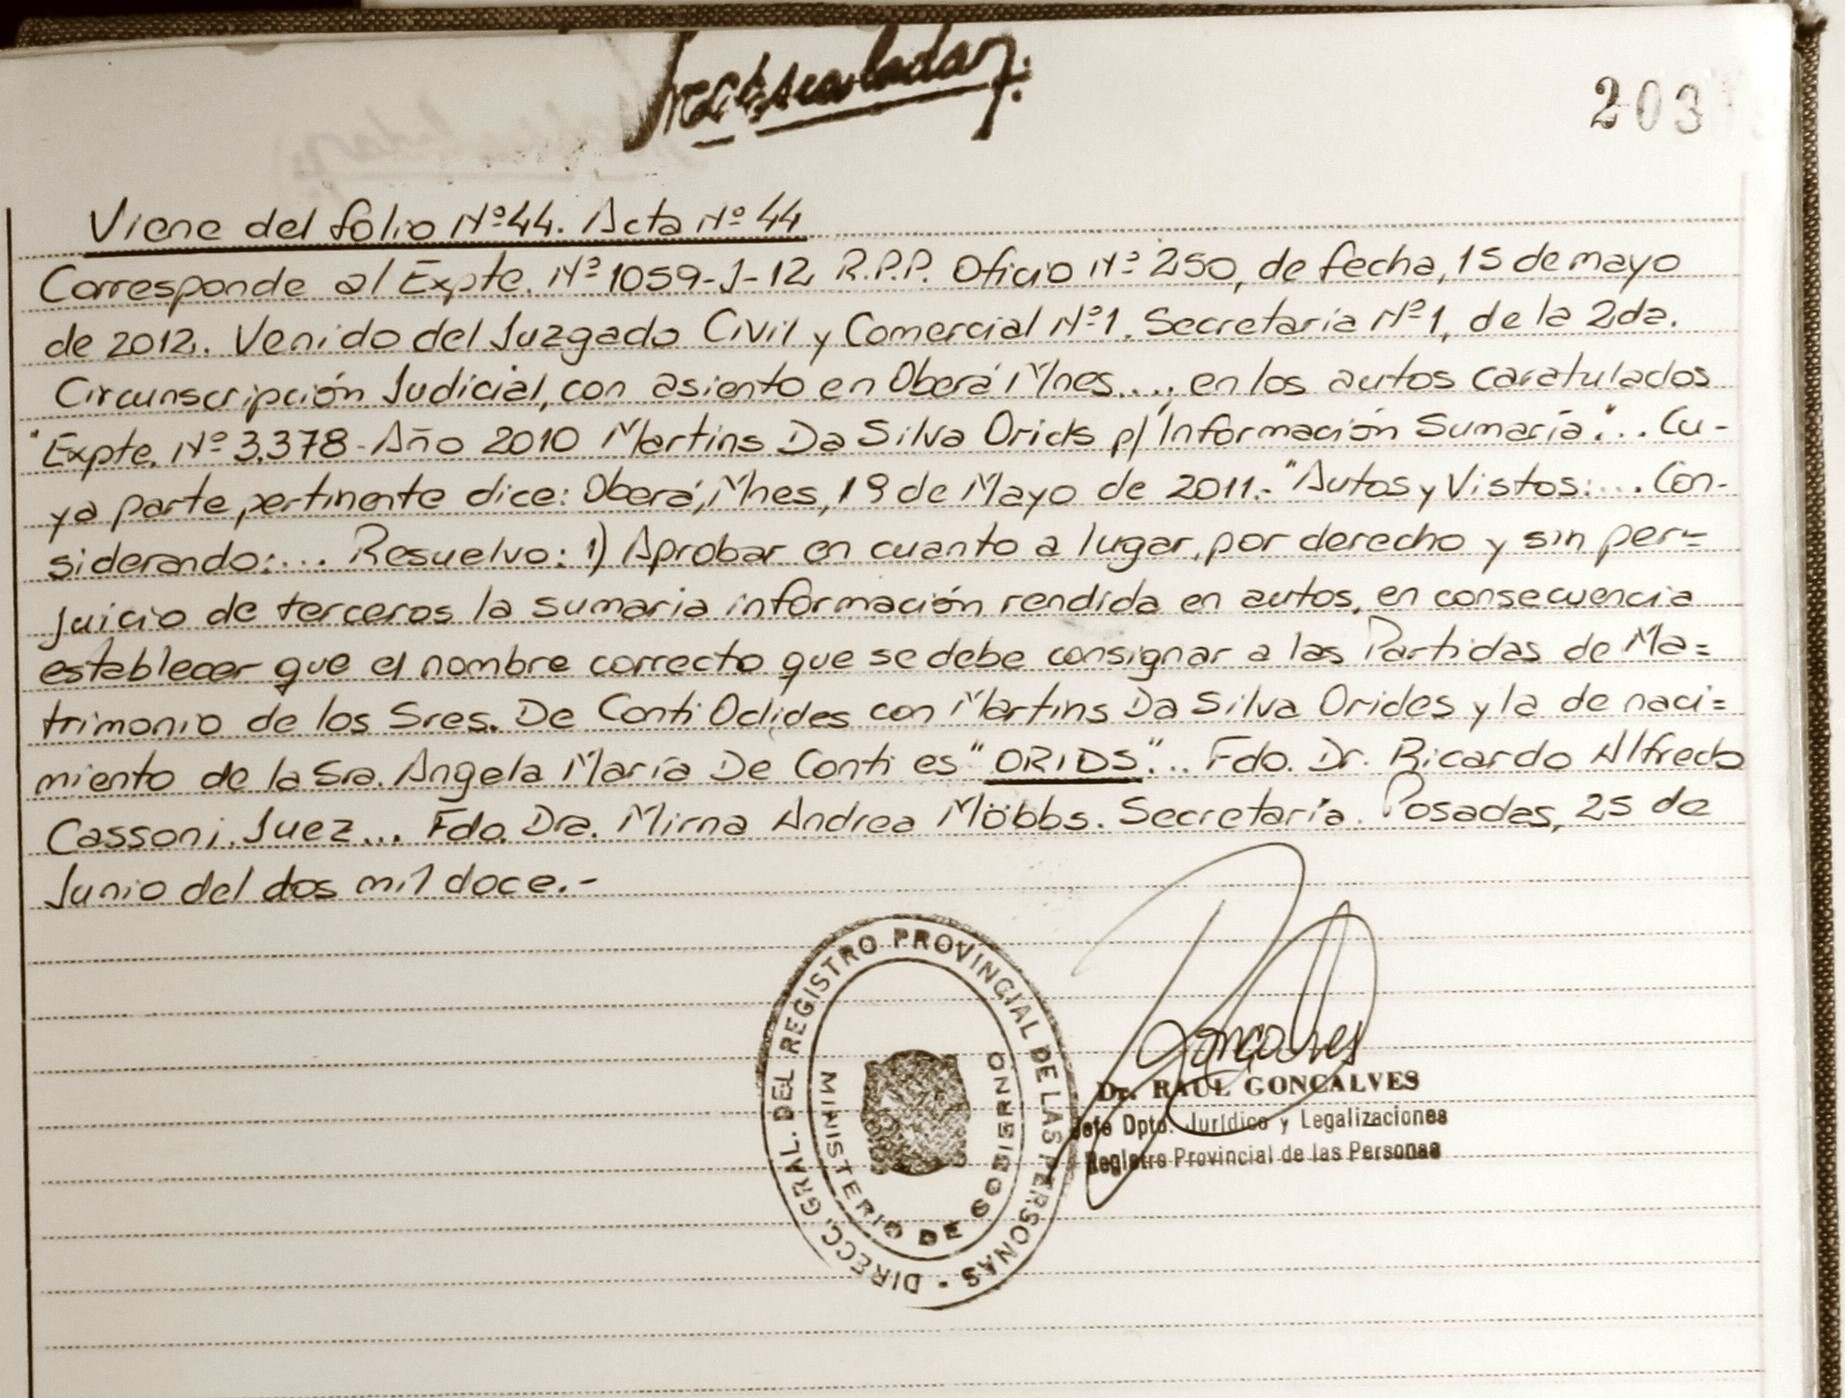 203
Viene del folio Nº 44. Acta Nº 44
Corresponde al Expte. Nº 1059-J-12 R.P.P. Oficio Nº 250, de fecha, 15 de mayo
de 2012. Venido del Juzgado Civil y Comercial Nº 1. Secretaria Nº 1, de la 2da.
Circunscripción Judicial, con asiento en Oberá Mnes...; en los autos caratulados
"Expte. Nº 3.378 - Año 2010 Martins Da Silva Orids p/ Información Sumaría"... Cu-
ya parte pertinente dice: Oberá, Mnes, 19 de Mayo de 2011.- "Autos y Vistos:... Con-
siderando:... Resuelvo: 1) Aprobar en cuanto a lugar, por derecho y sin per=
juicio de terceros la sumaria información rendida en autos, en consecuencia
establecer que el nombre correcto que se debe consignar a las Partidas de Ma=
trimonio de los Sres. De Conti Oclides con Martins Da Silva Orides y la de naci=
miento de la Sra. Angela María De Conti es "ORIDS"... Fdo. Dr. Ricardo Alfredo
Cassoni. Juez... Fdo. Dra. Mirna Andrea Möbbs. Secretaría. Posadas, 25 de
Junio del dos mil doce.-
DIRECC. GRAL. DEL REGISTRO PROVINCIAL DE LAS PERSONAS -
MINISTERIO DE GOBIERNO
Goncalves
Dr. RAUL GONCALVES
Jefe Dpto. Jurídico y Legalizaciones
Registro Provincial de las Personas